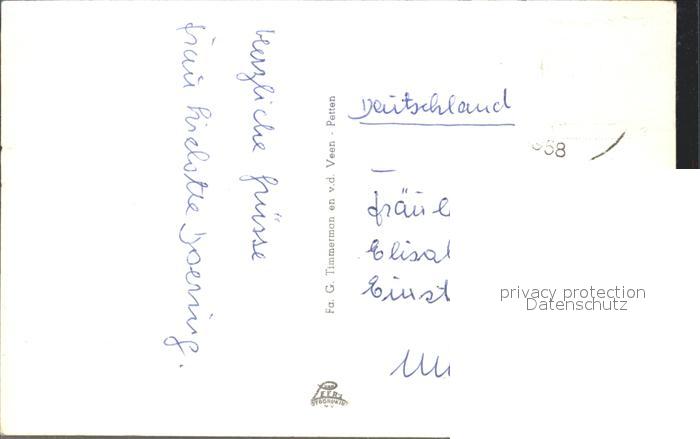 Herzliche Grüsse
Frau Liselotte Doering.
Fa. G. Timmerman en v.d. Veen - Petten
Deutschland
68
Fräul
Elisa
Einst
privacy protection
Datenschutz